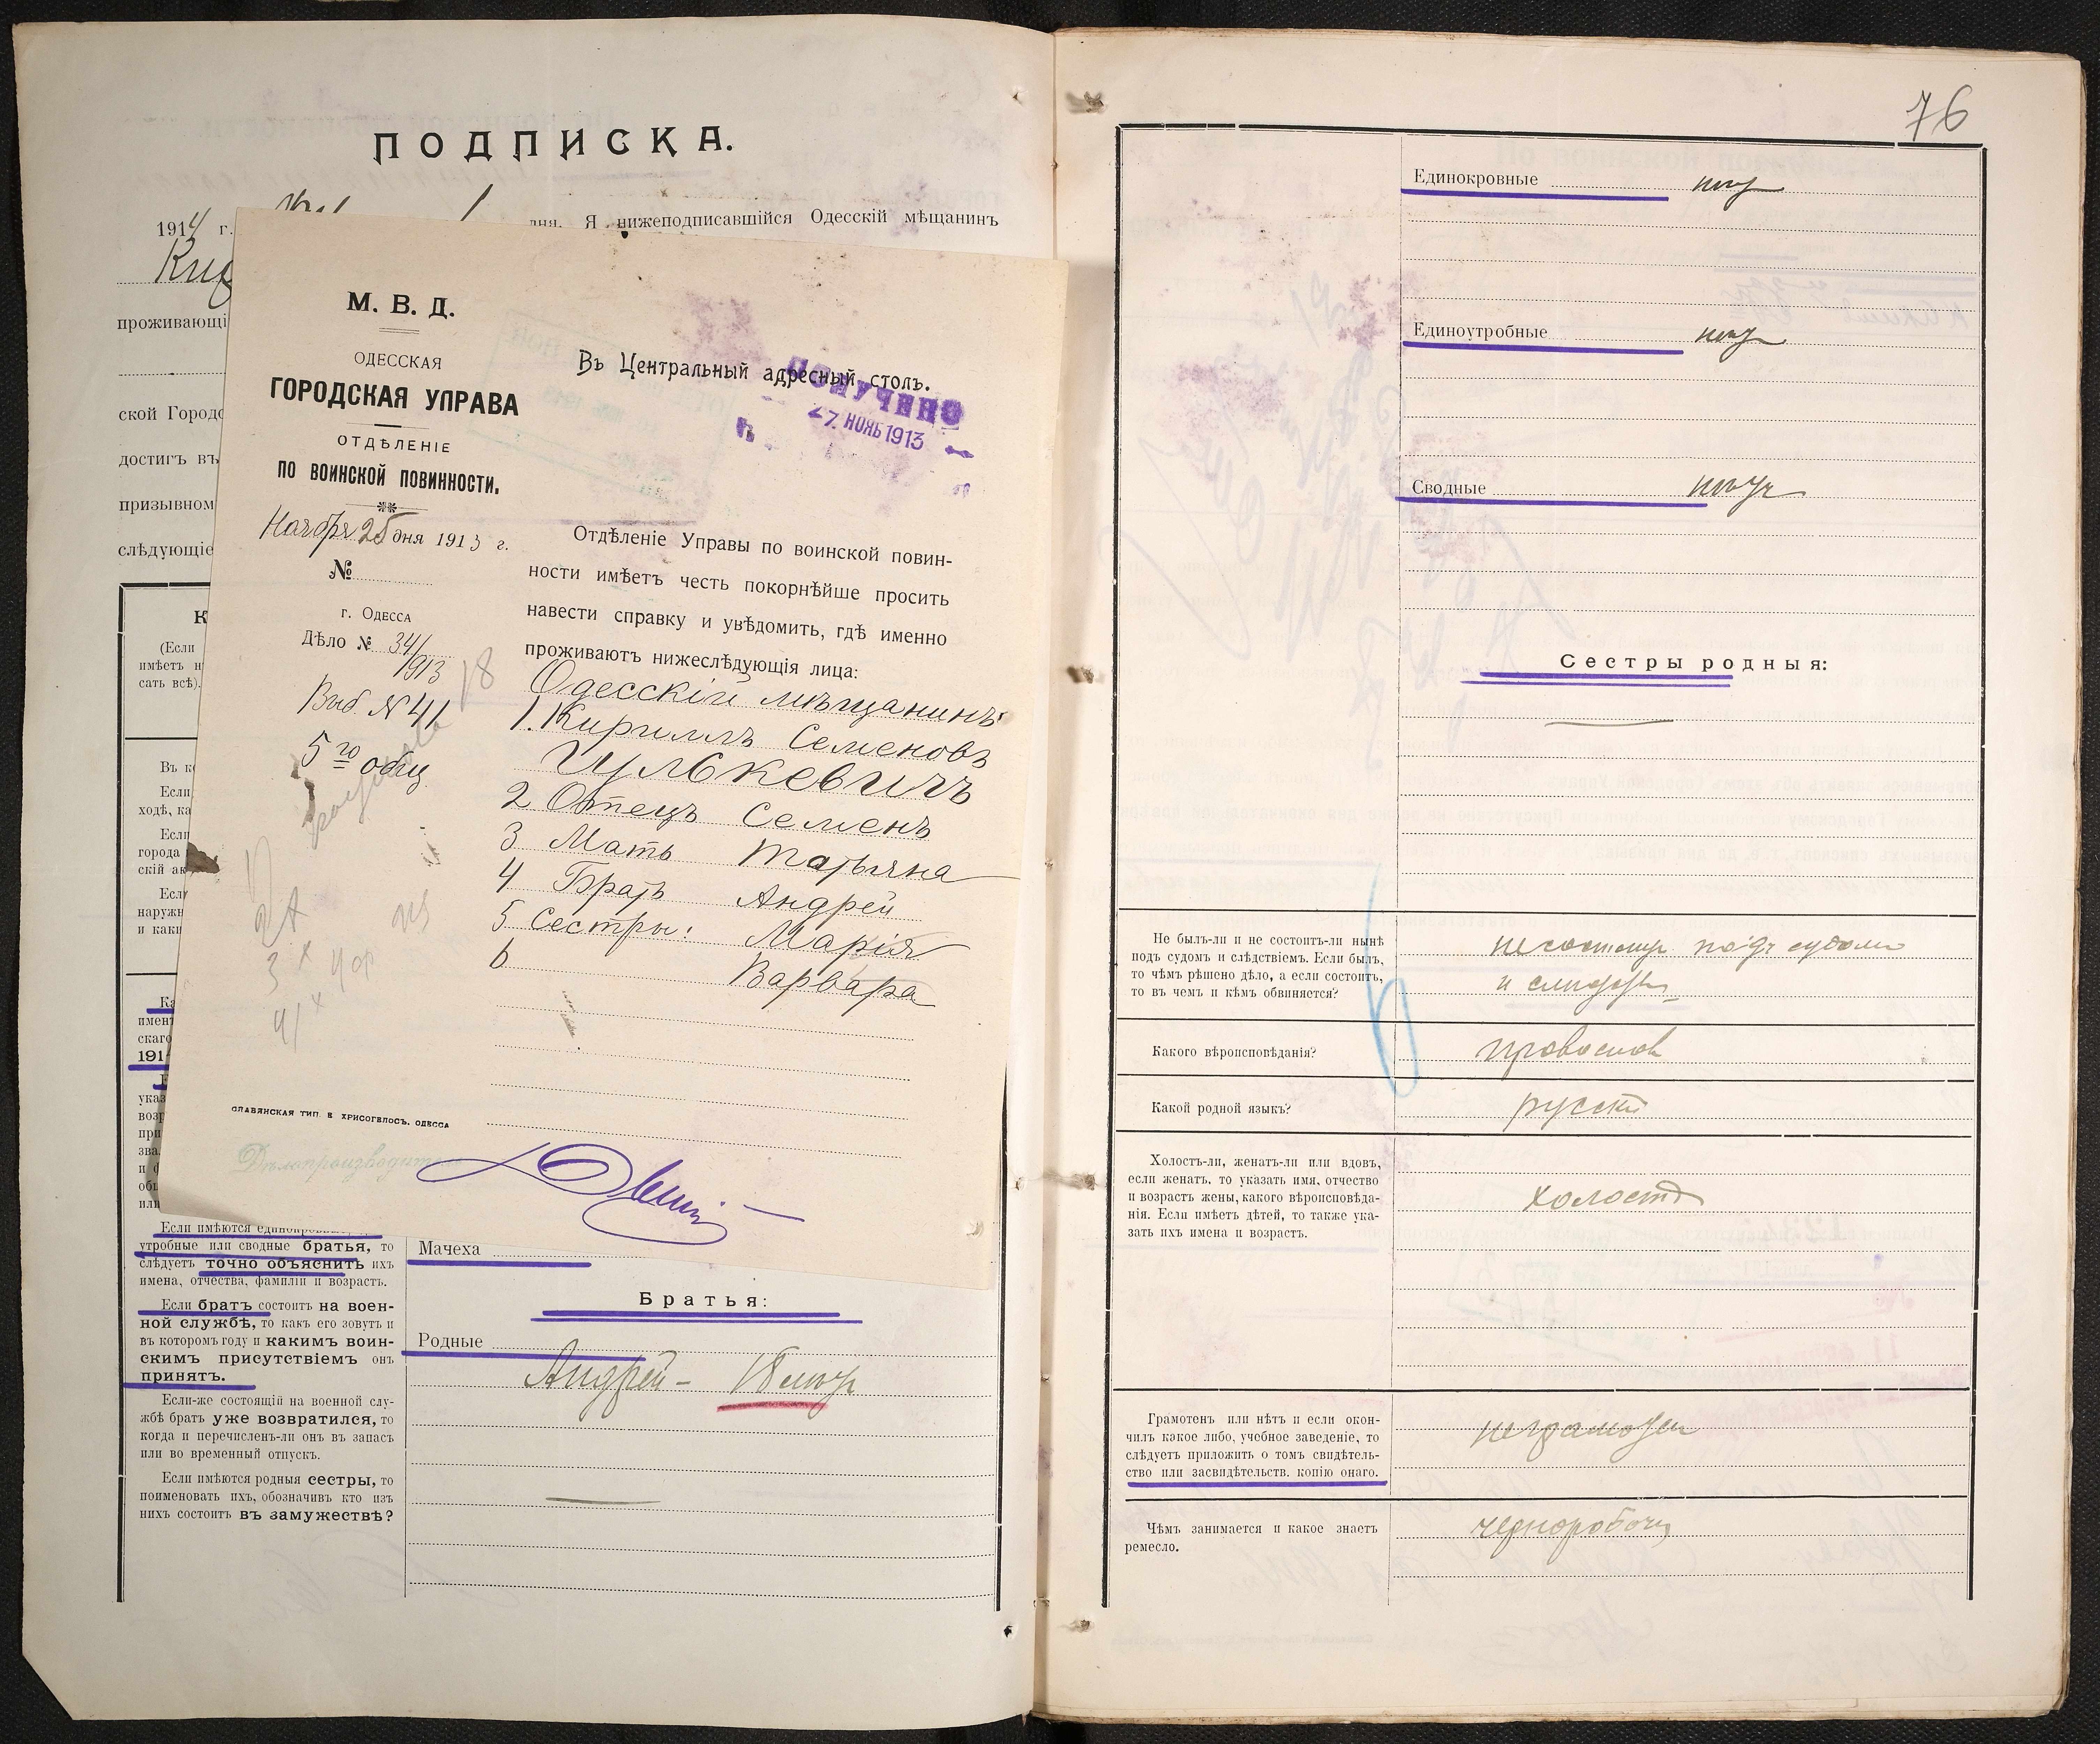 ПОДПИСКА.
1914 г.
дня. Я нижеподписавшійся Одесскій мѣщанинъ
проживающі
ской Городс
достигъ въ
призывном
слѣдующіе
М. В. Д.
ОДЕССКАЯ
ГОРОДСКАЯ УПРАВА
ОТДѢЛЕНІЕ
ПО ВОИНСКОЙ ПОВИННОСТИ.
Ноября 25 дня 1913 г.
№
г. Одесса
Дѣло № 34/913
Выб. № 41
5го общ
18
Въ Центральный адресный столъ.
ПОЛУЧЕНО
27. НОЯБ 1913
Отдѣленіе Управы по воинской повин-
ности имѣетъ честь покорнѣйше просить
навести справку и увѣдомить, гдѣ именно
проживаютъ нижеслѣдующія лица:
Одесскій мѣщанинъ
1. Кириллъ Семеновъ
Шулькевичъ
2 Отецъ Семенъ
3 Мать Татьяна
4 Братъ Андрей
5 Сестры: Марія
6 Варвара
СЛАВЯНСКАЯ ТИП. Е. ХРИСОГЕЛОСЪ, ОДЕССА
Дѣлопроизводитель
К
(Если
имѣетъ н
сать всѣ).
Въ ко
Если
ходѣ, ка
Если
города
скій ак
Если
наружн
и каки
Ка
имен
скаго
191
указ
возр
при
зва
Если имѣются единокровные,
утробные или сводные братья, то
слѣдуетъ точно объяснить ихъ
имена, отчества, фамиліи и возрастъ.
Если братъ состоитъ на воен-
ной службѣ, то какъ его зовутъ и
въ которомъ году и какимъ воин-
скимъ присутствіемъ онъ
принятъ.
Если-же состоящій на военной слу-
жбѣ братъ уже возвратился, то
когда и перечисленъ-ли онъ въ запасъ
или во временный отпускъ.
Если имѣются родныя сестры, то
поименовать ихъ, обозначивъ кто изъ
нихъ состоитъ въ замужествѣ?
Мачеха
Братья:
Родные
Андрей - 18 лѣтъ
76
Единокровные нѣтъ
Единоутробные нѣтъ
Сводные нѣтъ
Сестры родныя:
Не былъ-ли и не состоитъ-ли нынѣ
подъ судомъ и слѣдствіемъ. Если былъ,
то чѣмъ рѣшено дѣло, а если состоитъ,
то въ чемъ и кѣмъ обвиняется?
не состоитъ подъ судомъ
Какого вѣроисповѣданія?
православ
Какой родной языкъ?
русскій
Холостъ-ли, женатъ-ли или вдовъ,
если женатъ, то указать имя, отчество
и возрастъ жены, какого вѣроисповѣда-
нія. Если имѣетъ дѣтей, то также ука-
зать ихъ имена и возрастъ.
холостъ
Грамотенъ или нѣтъ и если окон-
чилъ какое либо, учебное заведеніе, то
слѣдуетъ приложить о томъ свидѣтель-
ство или засвидѣтельств. копію онаго.
неграмотен
Чѣмъ занимается и какое знаетъ
ремесло.
чернорабочій